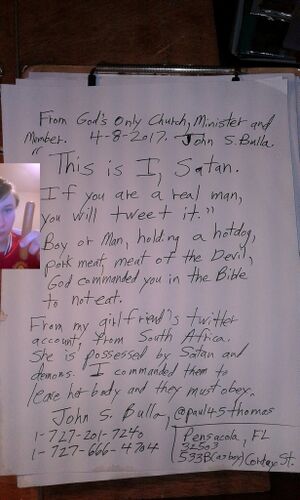 From God's Only Church, Minister and
Member. 4-8-2017. John S. Bulla.
"This is I, Satan.
If you are a real man,
you will tweet it."
Boy or Man, holding a hotdog,
pork meat, meat of the Devil,
God commanded you in the Bible
to not eat.
From my girlfriend's twitter
account, from South Africa.
She is possessed by Satan and
demons. I commanded them to
leave her body and they must obey.
John S. Bulla, @paul45thomas
1-727-201-7240
1-727-666-4704
Pensacola, FL
32503
533B (as boy) Corday St.